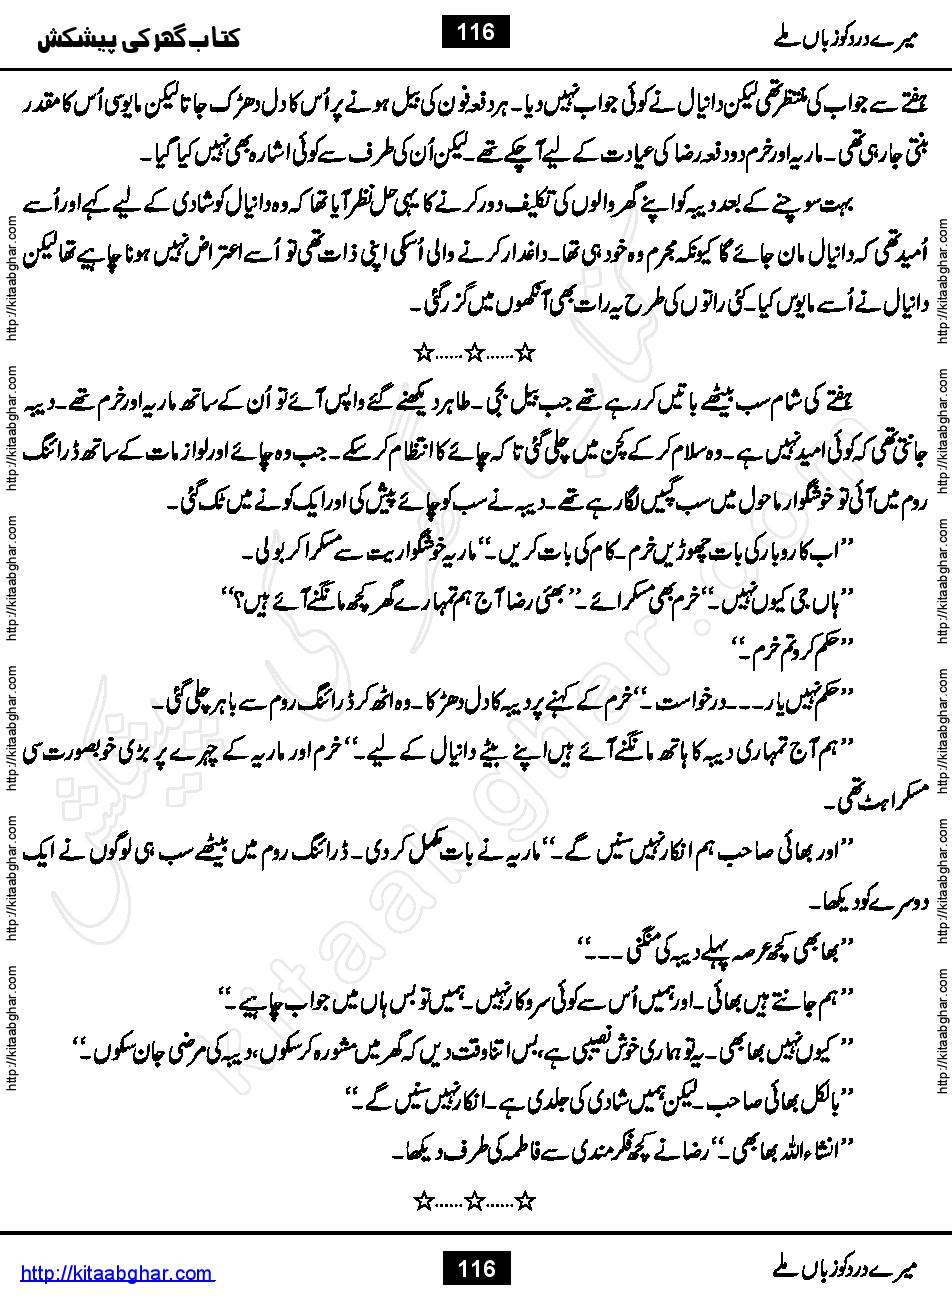 میرے درد کو زباں ملے
116
کتاب گھر کی پیشکش
ہفتے سے جواب کی منتظر تھی لیکن دانیال نے کوئی جواب نہیں دیا۔ ہر دفعہ فون کی بیل ہونے پر اُس کا دل دھڑک جاتا لیکن مایوسی اُس کا مقدر
بنتی جا رہی تھی۔ ماریہ اور خرم دو دفعہ رضا کی عیادت کے لیے آ چکے تھے۔ لیکن اُن کی طرف سے کوئی اشارہ بھی نہیں کیا گیا۔
بہت سوچنے کے بعد دیبہ کو اپنے گھر والوں کی تکلیف دور کرنے کا یہی حل نظر آیا تھا کہ وہ دانیال کو شادی کے لیے کہے اور اُسے
اُمید تھی کہ دانیال مان جائے گا کیونکہ مجرم وہ خود ہی تھا۔ داغدار کرنے والی اُسکی اپنی ذات تھی تو اُسے اعتراض نہیں ہونا چاہیے تھا لیکن
دانیال نے اُسے مایوس کیا۔ کئی راتوں کی طرح یہ رات بھی آنکھوں میں گزر گئی۔
☆......☆......☆
ہفتے کی شام سب بیٹھے باتیں کر رہے تھے جب بیل بجی۔ طاہر دیکھنے گئے واپس آئے تو اُن کے ساتھ ماریہ اور خرم تھے۔ دیبہ
جانتی تھی کہ کوئی امید نہیں ہے۔ وہ سلام کر کے کچن میں چلی گئی تا کہ چائے کا انتظام کر سکے۔ جب وہ چائے اور لوازمات کے ساتھ ڈرائنگ
روم میں آئی تو خوشگوار ماحول میں سب گپیں لگا رہے تھے۔ دیبہ نے سب کو چائے پیش کی اور ایک کونے میں ٹک گئی۔
’’اب کاروبار کی بات چھوڑیں خرم۔ کام کی بات کریں۔‘‘ ماریہ خوشگواریت سے مسکرا کر بولی۔
’’ہاں جی کیوں نہیں۔‘‘ خرم بھی مسکرائے۔ ’’بھئی رضا آج ہم تمہارے گھر کچھ مانگنے آئے ہیں؟‘‘
’’حکم کرو تم خرم۔‘‘
’’حکم نہیں یار۔۔۔ درخواست۔‘‘ خرم کے کہنے پر دیبہ کا دل دھڑکا۔ وہ اٹھ کر ڈرائنگ روم سے باہر چلی گئی۔
’’ہم آج تمہاری دیبہ کا ہاتھ مانگنے آئے ہیں اپنے بیٹے دانیال کے لیے۔‘‘ خرم اور ماریہ کے چہرے پر بڑی خوبصورت سی
مسکراہٹ تھی۔
’’اور بھائی صاحب ہم انکار نہیں سنیں گے۔‘‘ ماریہ نے بات مکمل کر دی۔ ڈرائنگ روم میں بیٹھے سب ہی لوگوں نے ایک
دوسرے کو دیکھا۔
’’بھابھی کچھ عرصہ پہلے دیبہ کی منگنی۔۔۔‘‘
’’ہم جانتے ہیں بھائی۔ اور ہمیں اُس سے کوئی سروکار نہیں۔ ہمیں تو بس ہاں میں جواب چاہیے۔‘‘
’’کیوں نہیں بھابھی۔ یہ تو ہماری خوش نصیبی ہے، بس اتنا وقت دیں کہ گھر میں مشورہ کر سکوں، دیبہ کی مرضی جان سکوں۔‘‘
’’بالکل بھائی صاحب۔ لیکن ہمیں شادی کی جلدی ہے۔ انکار نہیں سنیں گے۔‘‘
’’انشاءاللہ بھابھی۔‘‘ رضا نے کچھ فکرمندی سے فاطمہ کی طرف دیکھا۔
☆......☆......☆
میرے درد کو زباں ملے
116
http://kitaabghar.com
http://kitaabghar.com
http://kitaabghar.com
http://kitaabghar.com
http://kitaabghar.com
http://kitaabghar.com
http://kitaabghar.com
http://kitaabghar.com
http://kitaabghar.com
http://kitaabghar.com
http://kitaabghar.com
http://kitaabghar.com
http://kitaabghar.com
کتاب گھر کی پیشکش
kitaabghar.com